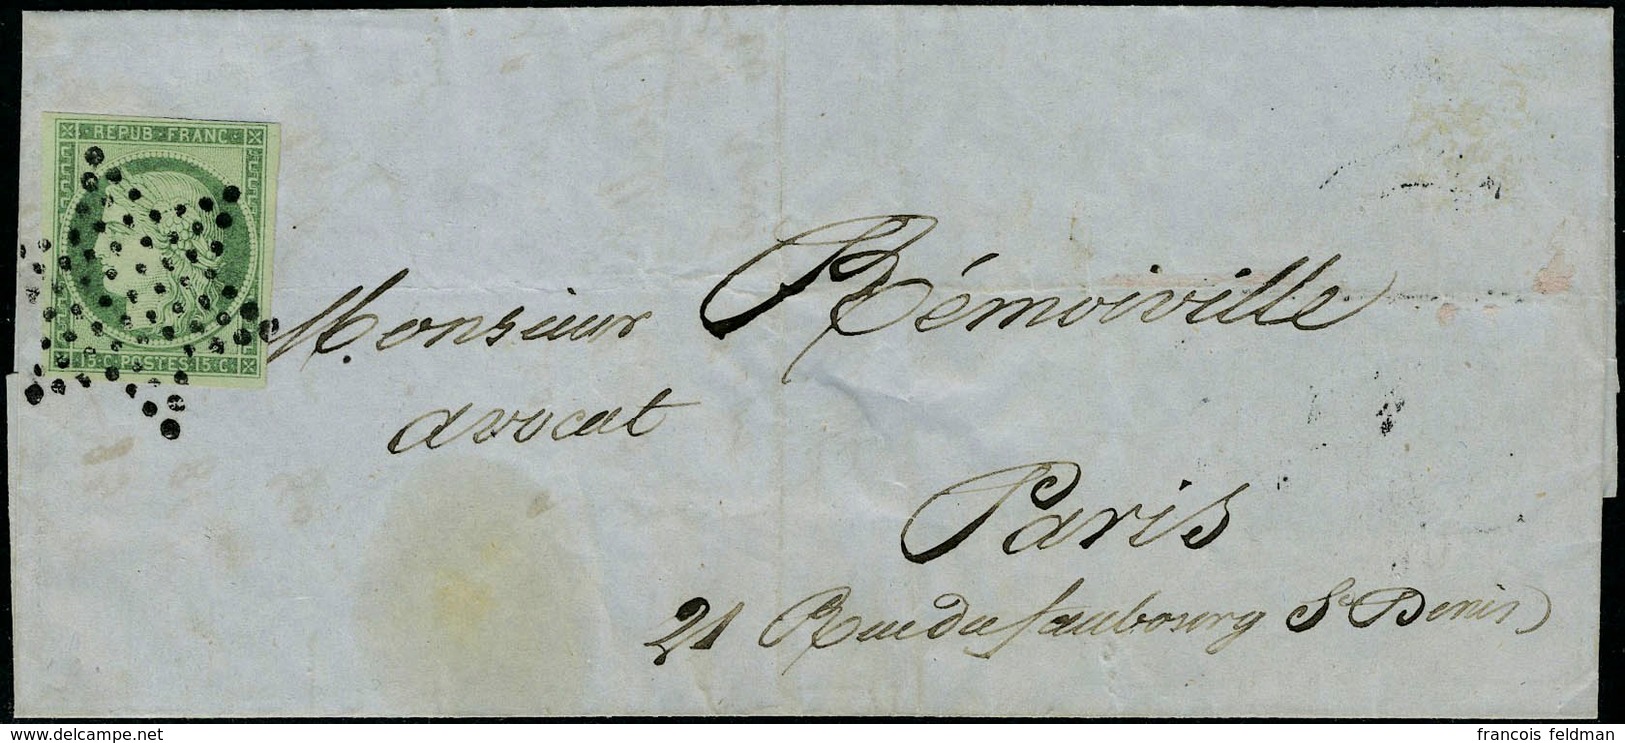 REPUB·FRANC·
15·C·POSTES·15·C·
Monsieur Rémoiville
avocat
Paris
21 Rue du faubourg St Denis
delcampe.net
francois feldman